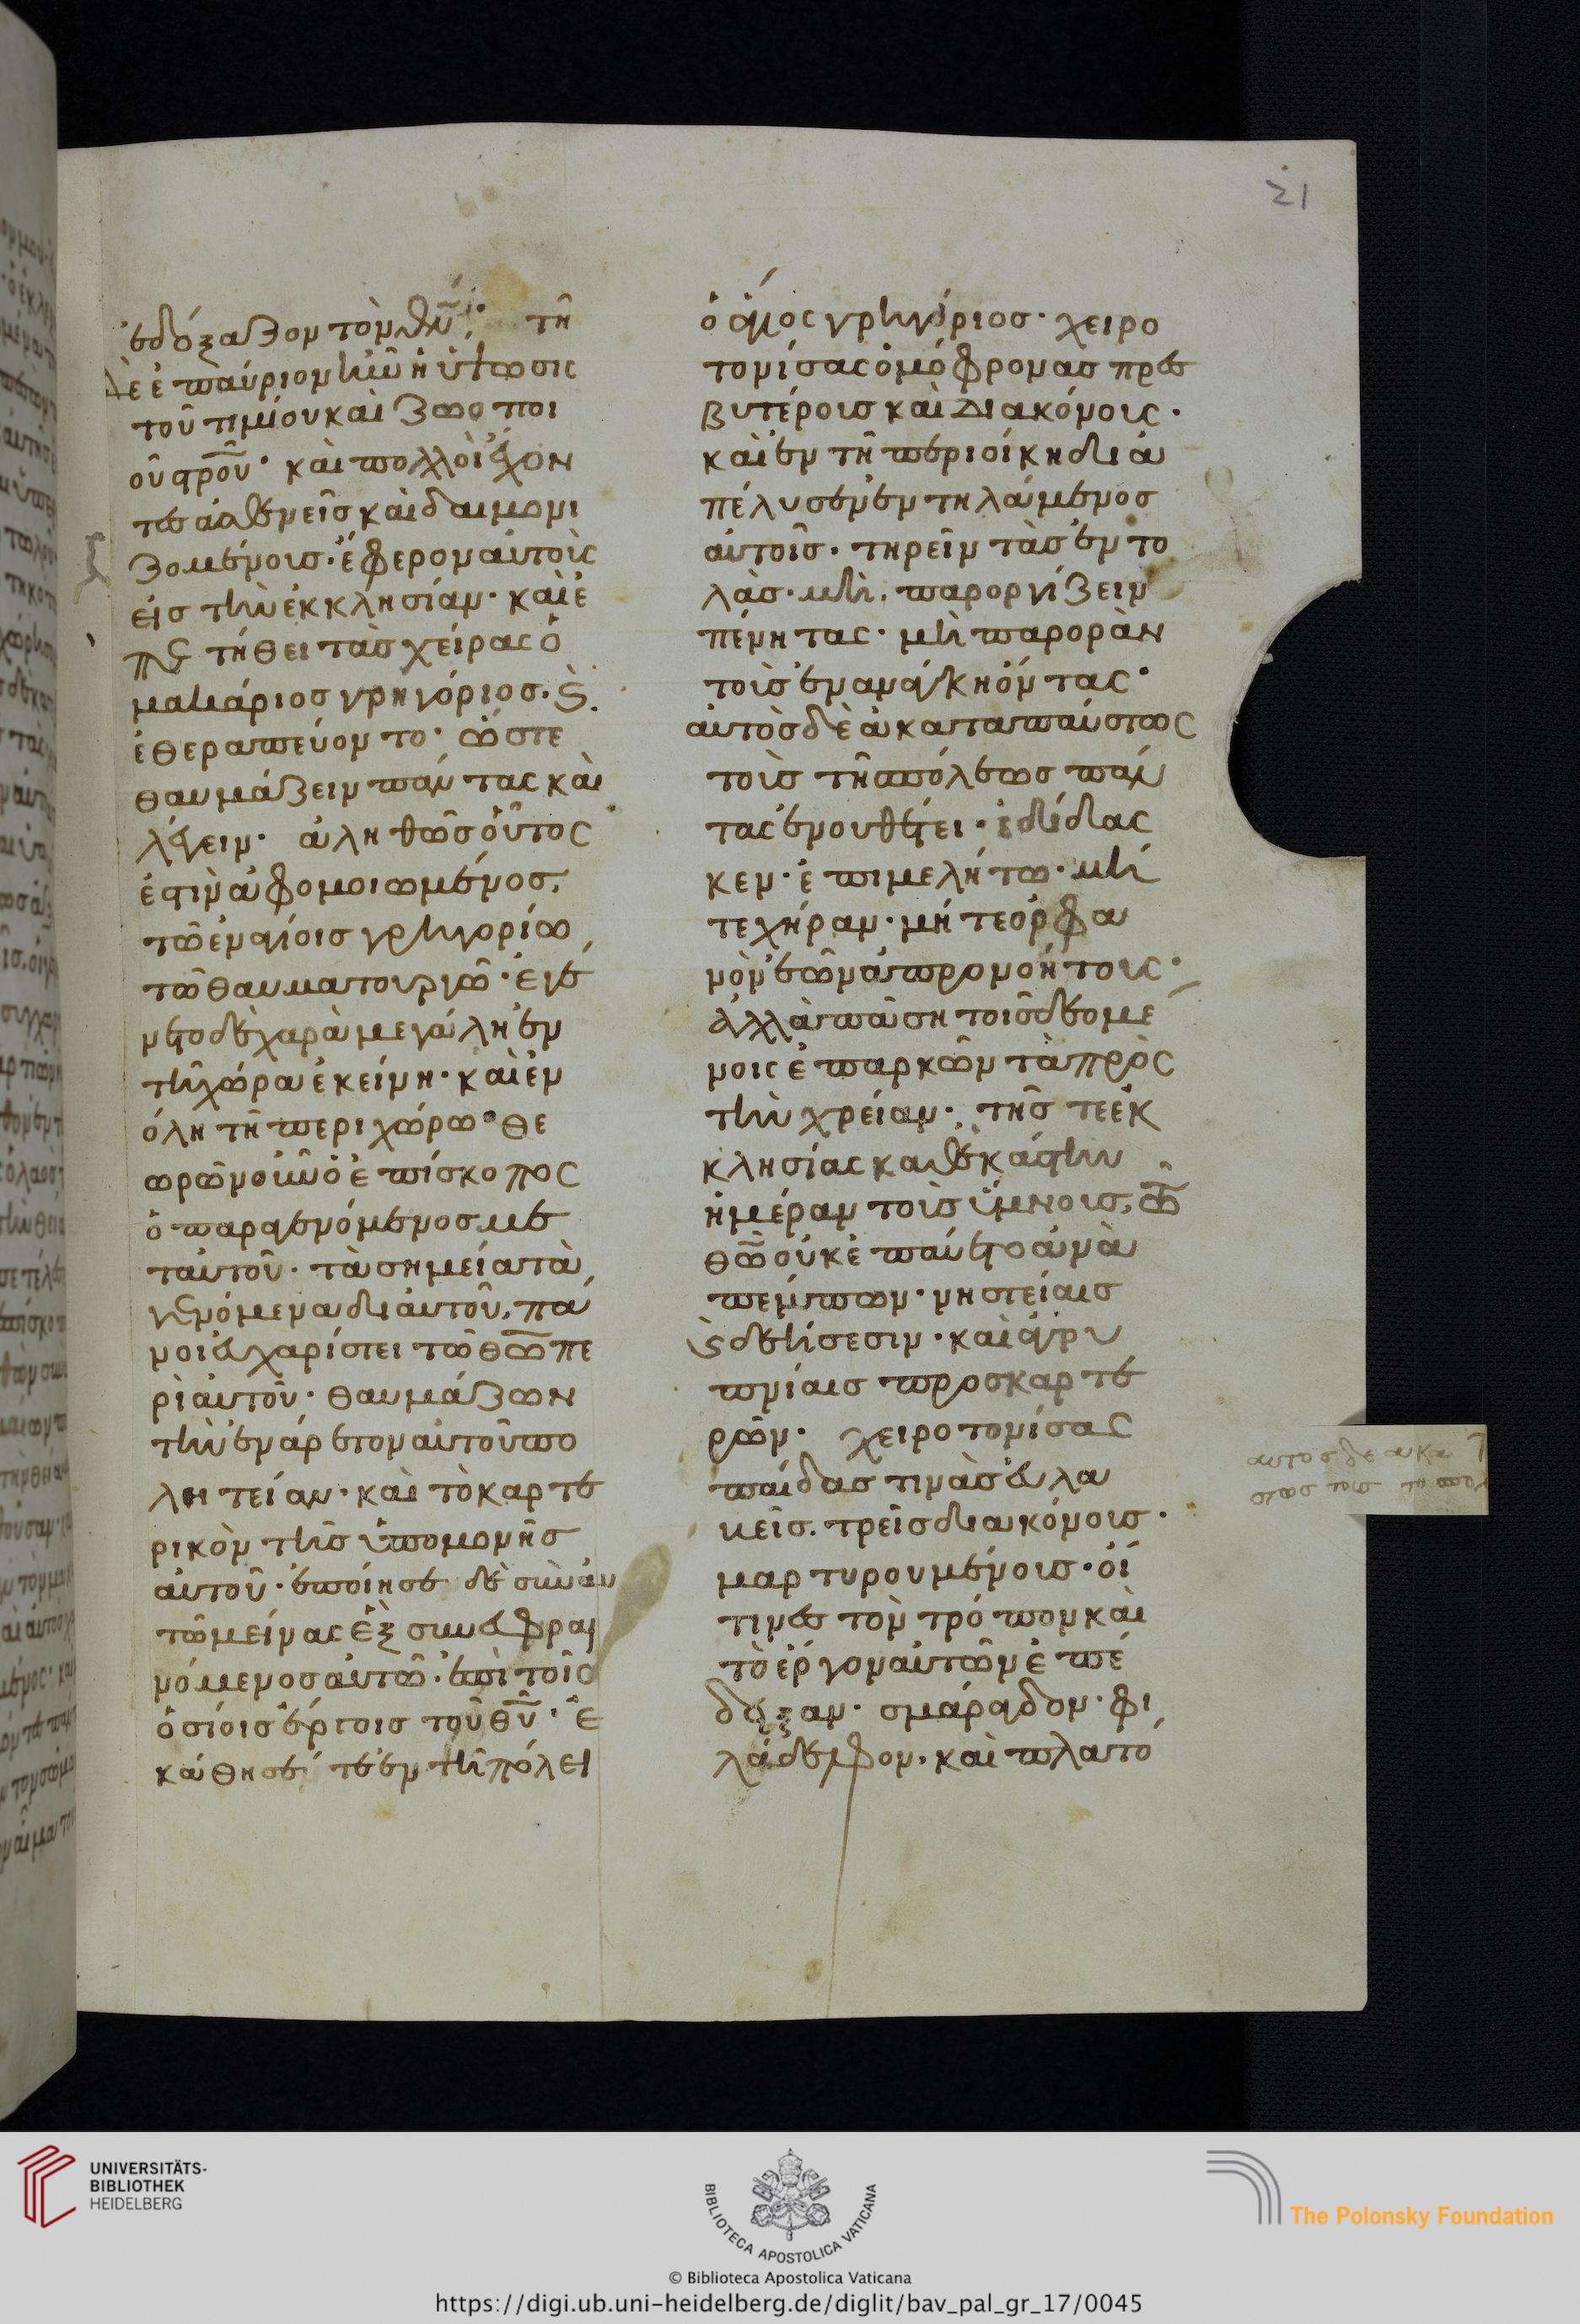 21
ἐδόξαζον τὸν θν̄· τῆ
δὲ ἐπαύριον ἦν ἡ ὕψωσις
τοῦ τιμίου καὶ ζωοποι
οῦ σρ̄οῦ· καὶ πολλοὶ ἔχον
τες ἀσθενεῖς καὶ δαιμονι
ζομένοις· ἔφερον αὐτοὺς
εἰς τὴν ἐκκλησίαν· καὶ ἐ
τήθει τὰς χεῖρας ὁ
μακάριος γρηγόριος· ϗ
ἐθεραπεύοντο· ὥστε
θαυμάζειν πάντας καὶ
λέγειν· ἀληθῶς οὗτος
ἐστὶν ἀφομοιωμένος,
τῶ ἐν ἁγίοις γρηγορίω,
τῶ θαυματουργῶ· ἐγέ
νετο δὲ χαρὰ μεγάλη ἐν
τῆ χώρα ἐκείνη· καὶ ἐν
ὅλη τῆ περιχώρω· θε
ωρῶν οὖν ὁ ἐπίσκοπος
ὁ παραγενόμενος με
τ' αὐτοῦ· τὰ σημεῖα τὰ
γενόμενα δι' αὐτοῦ, πά
νοι εὐχαρίστει τῶ θω̄ πε
ρὶ αὐτοῦ· θαυμάζων
τὴν ἐνάρετον αὐτοῦ πο
λητείαν· καὶ τὸ καρτε
ρικὸν τῆς ὑπομονῆς
αὐτοῦ· ἐποίησε δὲ σὺν αυ
τῶ μείνας ἓξ συνευφραι
νόμενος αὐτῶ· ἐπὶ τοῖς
ὁσίοις ἔργοις τοῦ θῦ· ἐ
κάθησέ τε ἐν τῆ πόλει
ὁ ἅγιος γρηγόριος· χειρο
τονίσας ὁμόφρονας πρεσ
βυτέροις καὶ διακόνοις·
καὶ ἐν τῆ περιοίκη διὰ
πέλυσεν ἐντηλάμενος
αὐτοῖς· τηρεῖν τὰς ἐντο
λάς· μὴ παροργίζειν
πένητας· μὴ παρορὰν
τοὺς ἐν ἀνάγκη ὄντας·
αὐτὸς δὲ ἀκαταπαύστως
τοὺς τῆ πόλεως πάν
τας ἐνουθέτει· ἐδίδας
κεν· ἐπιμελήτω· μή
τε χήραν· μήτε ὀρφα
νὸν ἐῶν ἀπρονοήτους·
ἀλλὰ πάση τοῖς δεομέ
νοις ἐπαρκῶν τὰ πρὸς
τὴν χρείαν· τῆς τε ἐκ
κλησίας καθ' ἑκάστην
ἡμέραν τοὺς ὕμνους, τῶ
θω̄ οὐκ ἐπαύετο ἀνα
πέμπων· νηστείαις
ϗ δεήσεσιν· καὶ ἀγρυ
πνίαις προσκαρτε
ρῶν· χειροτονίσας
παῖδας τινὰς εὐλα
κεῖς· τρεῖς διακόνους·
μαρτυρουμένους· οἵ
τινες τὸν τρόπον καὶ
τὸ ἔργον αὐτῶν ἐπέ
δοξαν· σμάραγδον· φι
λάδελφον· καὶ πλατο
αυτος δε ακα τ
στως τους τη πολ
UNIVERSITÄTS-
BIBLIOTHEK
HEIDELBERG
BIBLIOTECA APOSTOLICA VATICANA
The Polonsky Foundation
© Biblioteca Apostolica Vaticana
https://digi.ub.uni-heidelberg.de/diglit/bav_pal_gr_17/0045